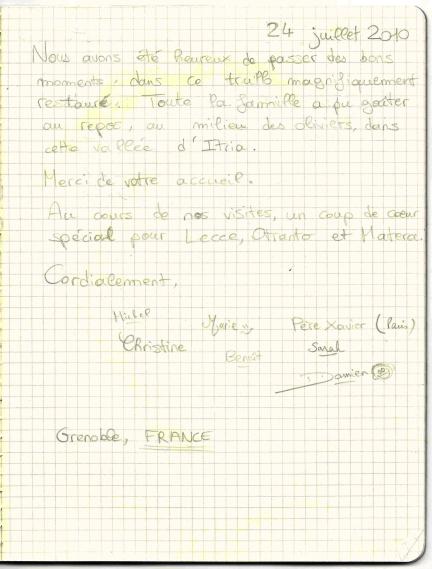 24 juillet 2010
Nous avons été heureux de passer des bons
moments, dans ce trullo magnifiquement
restauré. Toute la fammille a pu goûter
au repos, au milieu des oliviers, dans
cette vallée d'Itria.
Merci de votre accueil.
Au cours de nos visites, un coup de coeur
spécial pour Lecce, Otranto et Matera.
Cordialement,
Michel Marie Père Xavier (Paris)
Christine Benoît Sarah
Damien
Grenoble, FRANCE